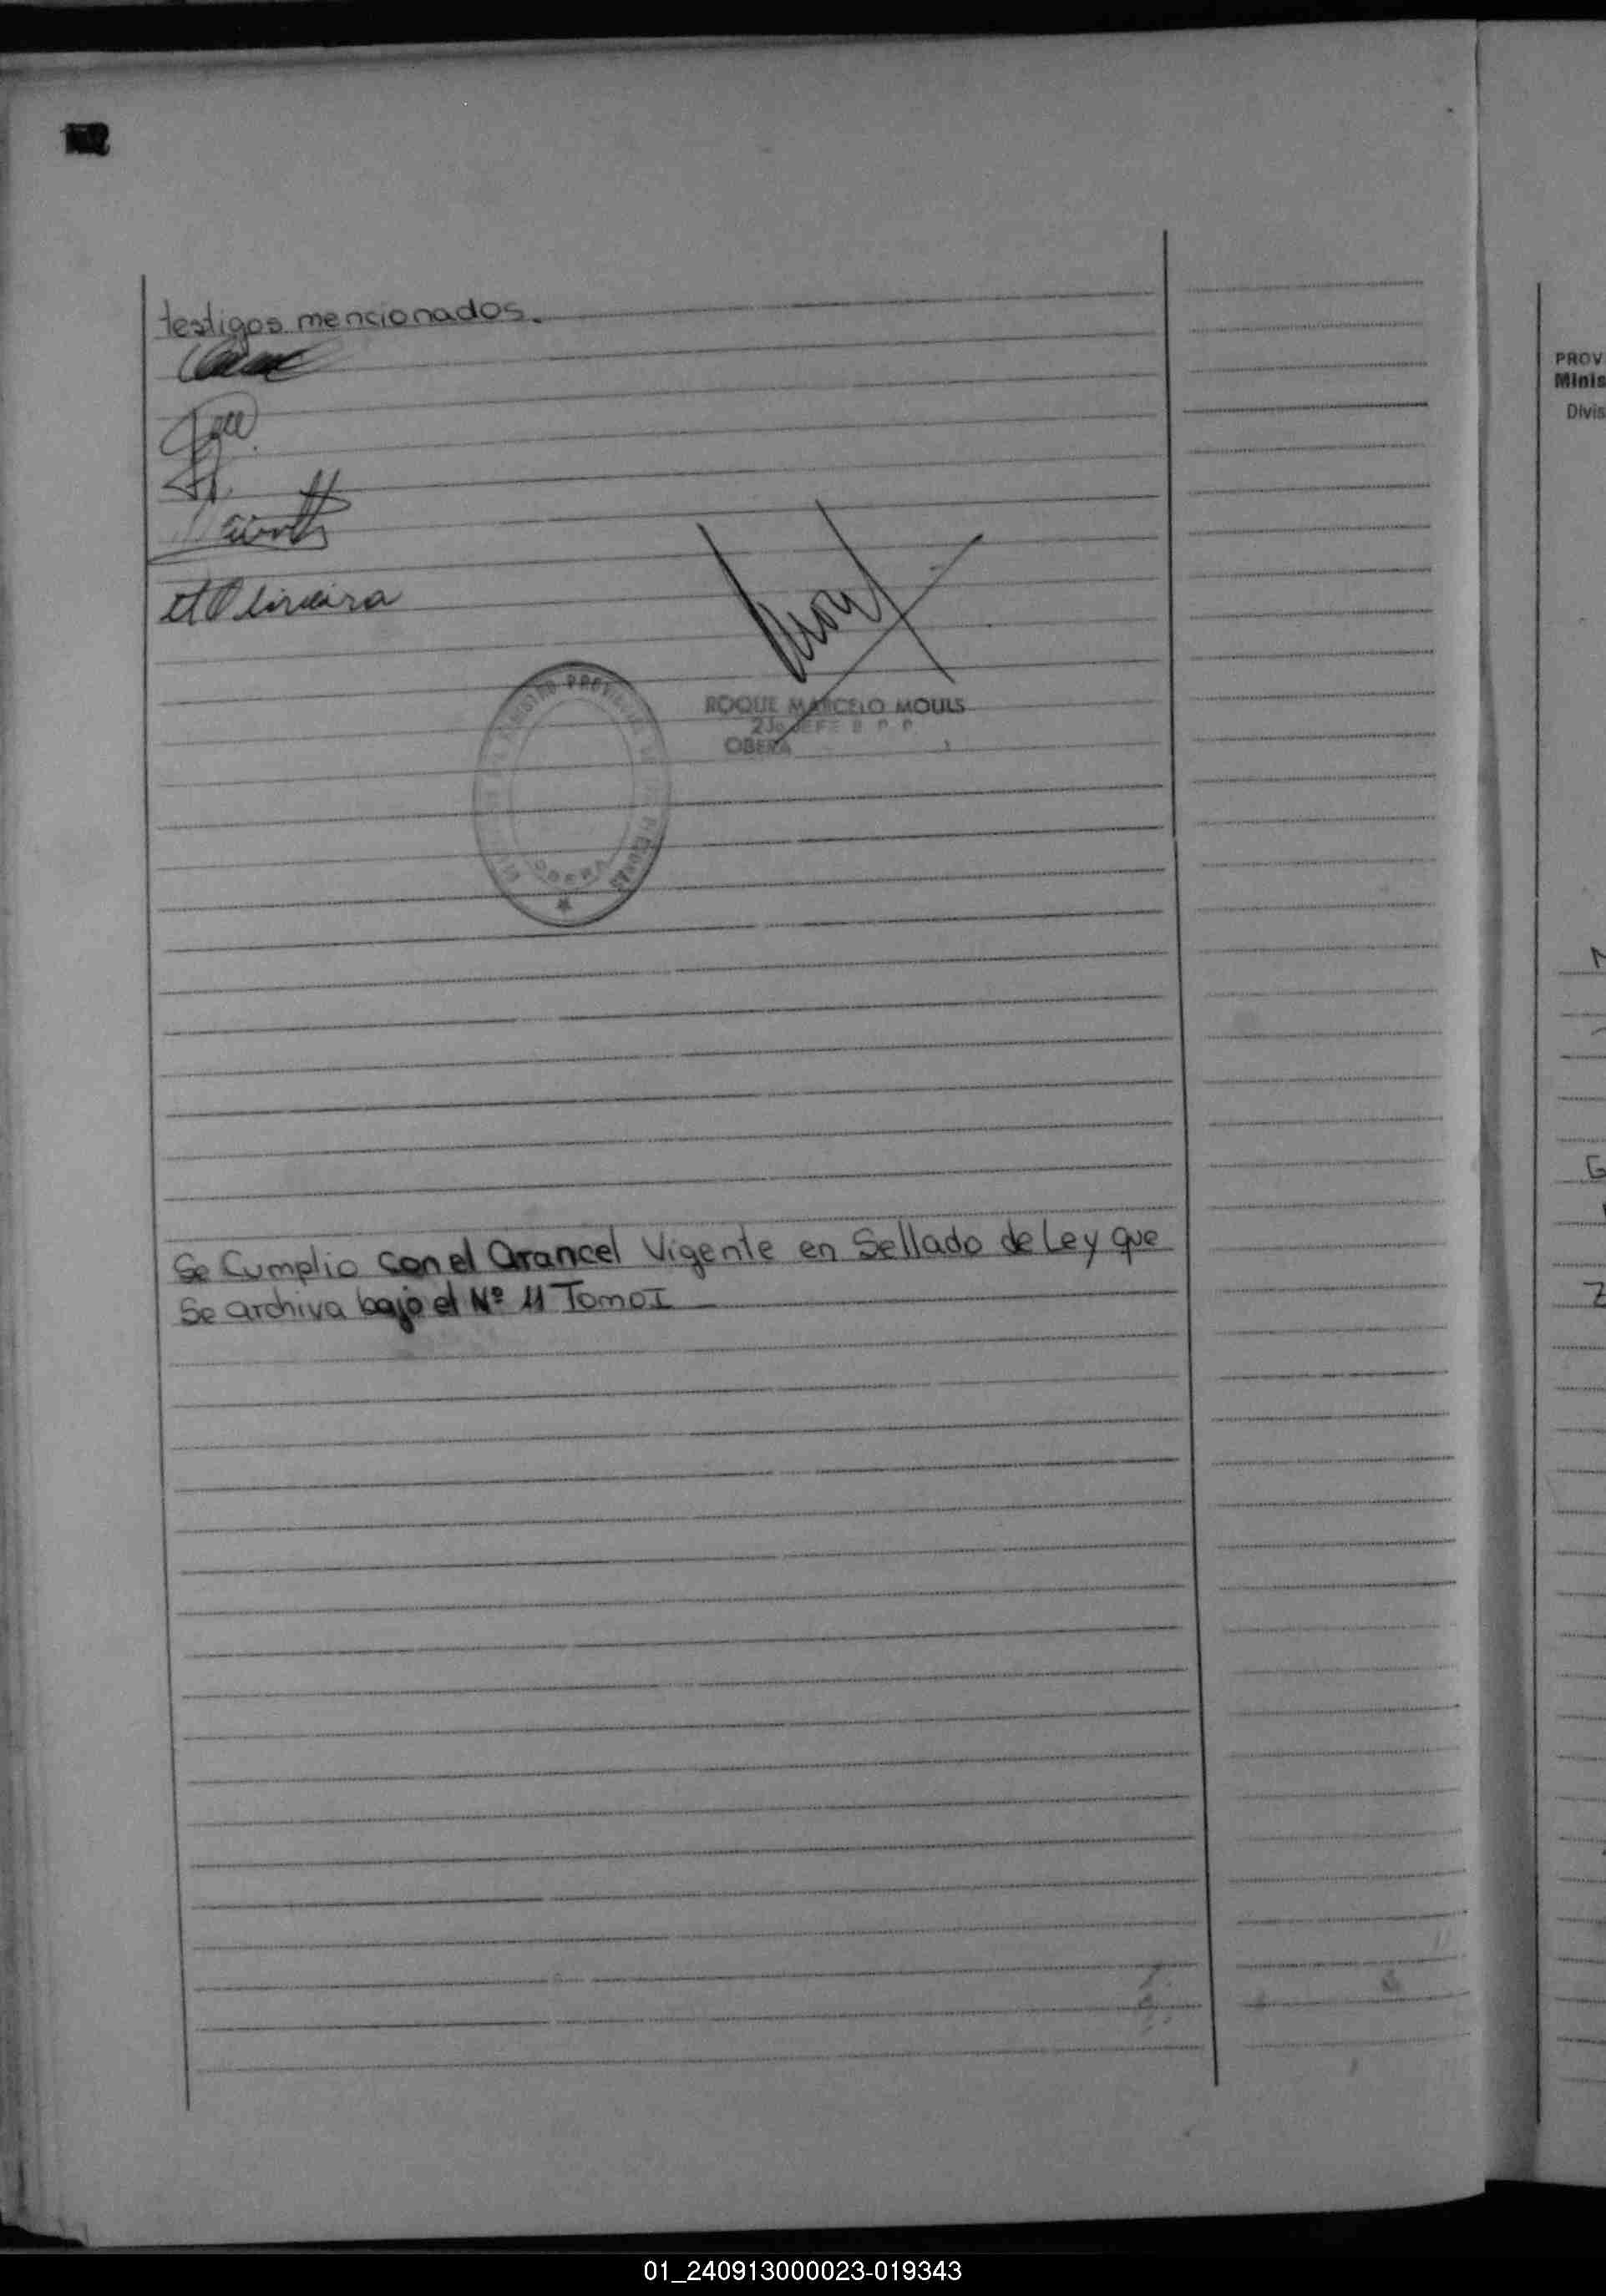 testigos mencionados.
A Oliveira
ROQUE MARCELO MOULS
OBERA
OBERA
Se Cumplio con el Arancel Vigente en Sellado de Ley que
Se archiva bajo el Nº 11 Tomo I
PROV
Minis
Divis
01_240913000023-019343